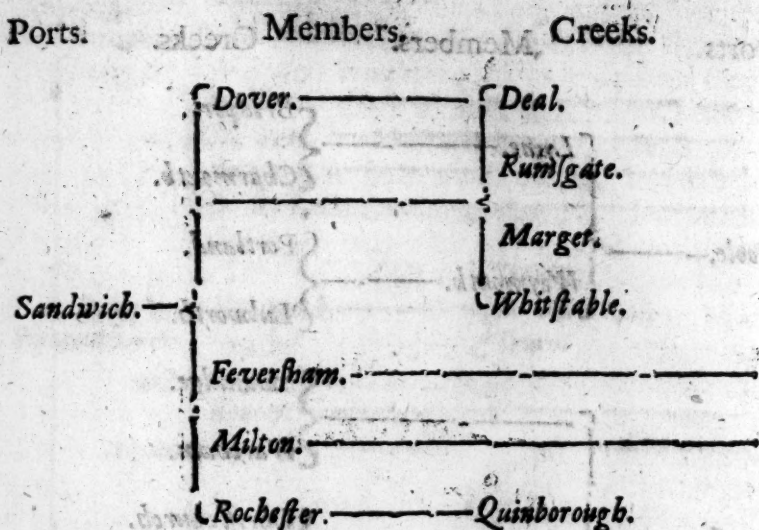 Ports. Members. Creeks.
Dover. Deal.
Rumſgate.
Marget.
Sandwich. Whitſtable.
Feverſham.
Milton.
Rocheſter. Quinborough.